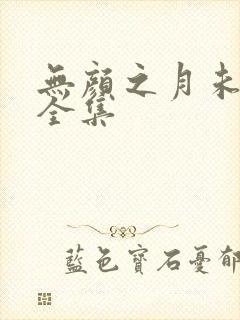 無顏之月未
全集
藍色寶石憂郁